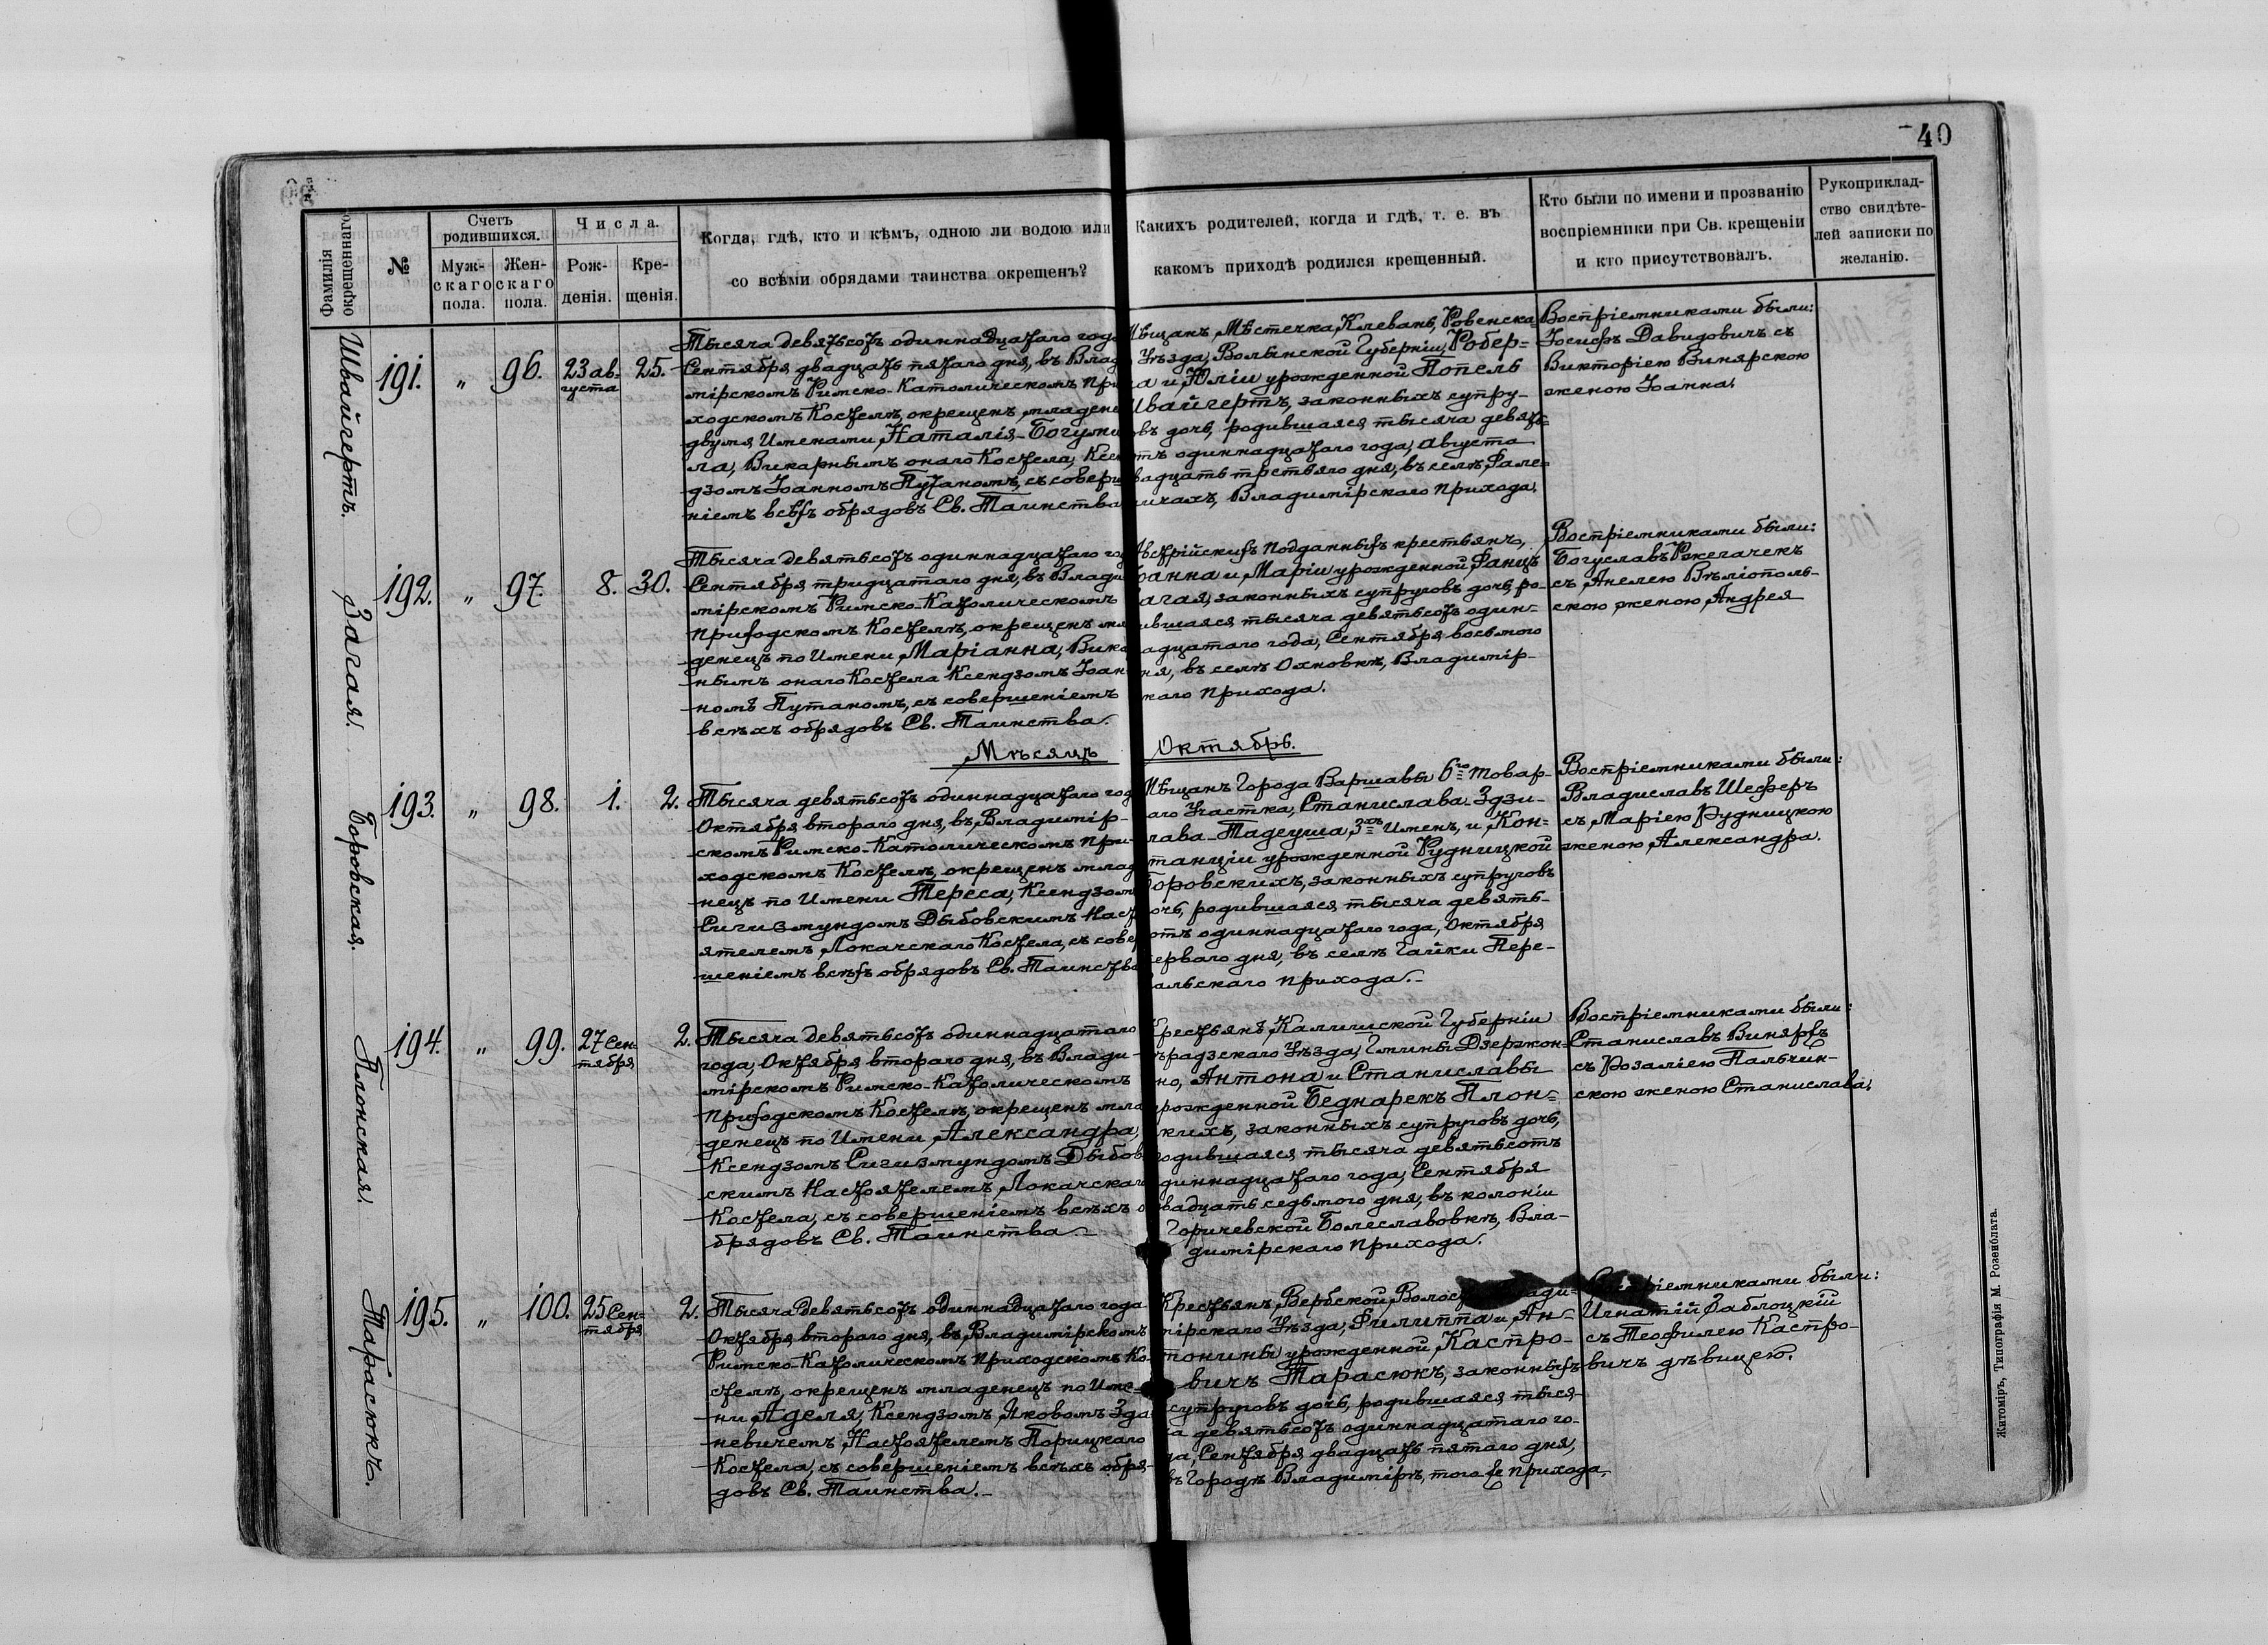 40
Фамилія окрещеннаго.
№
Счетъ родившихся.
Муж-
скаго
пола.
Жен-
скаго
пола.
Числа.
Рож-
денія.
Кре-
щенія.
Когда, гдѣ, кто и кѣмъ, одною ли водою или
со всѣми обрядами таинства окрещенъ?
Какихъ родителей, когда и гдѣ, т. е. въ
какомъ приходѣ родился крещенный.
Кто были по имени и прозванію
воспріемники при Св. крещеніи
и кто присутствовалъ.
Рукоприклад-
ство свидѣте-
лей записки по
желанію.
Швайгертъ.
191.
"
96.
23 ав-
густа
25.
Тысяча девятьсотъ одиннадцатаго год
Сентября двадцать пятаго дня, въ Влад
мірскомъ Римско-Католическомъ При
ходскомъ Костелѣ, окрещенъ младене
двумя Именами Наталія-Богуми
ла, Викарнымъ онаго Костела, Ксен
дзомъ Іоанномъ Путаномъ, съ соверш
ніемъ всѣхъ обрядовъ Св. Таинства
Мѣщанъ Мѣстечка Клевань, Ровенска
Уѣзда, Волынской Губерніи, Робер=
а и Юліи урожденной Попель
Швайгертъ, законныхъ супру-
овъ дочь, родившаяся тысяча девять=
отъ одиннадцатаго года, Августа
вадцать третьяго дня, въ селѣ Фале=
ичахъ, Владимірскаго прихода.
Воспріемниками были:
Іосифъ Давидовичъ съ
Викторіею Винярскою
женою Іоанна.
Загая.
192.
"
97.
8.
30.
Тысяча девятьсотъ одиннадцатаго год
Сентября тридцатаго дня, въ Влади
мірскомъ Римско-Католическомъ
Приходскомъ Костелѣ, окрещенъ мла
денецъ по Имени Маріанна, Вика
нымъ онаго Костела Ксендзомъ Іоан
номъ Путаномъ, съ совершеніемъ
всѣхъ обрядовъ Св. Таинства.
Австрійскихъ подданныхъ крестьянъ,
оанна и Маріи урожденной Фанцъ
агая, законныхъ супруговъ дочь, ро-
ившаяся тысяча девятьсотъ один=
адцатаго года, Сентября восьмого
ня, въ селѣ Охновкѣ, Владимір-
каго прихода.
Воспріемниками были:
Богуславъ Ржегачекъ
съ Анелею Вѣліополь-
скою женою Андрея
Мѣсяцъ Октябрь.
Боровская.
193.
"
98.
1.
2.
Тысяча девятьсотъ одиннадцатаго год
Октября втораго дня, въ Владимір-
скомъ Римско-Католическомъ При-
ходскомъ Костелѣ, окрещенъ млад
нецъ по Имени Тереса, Ксендзом
Сигизмундомъ Дыбовскимъ Наст
ятелемъ Локачскаго Костела, съ совер
шеніемъ всѣхъ обрядовъ Св. Таинства
Мѣщанъ Города Варшавы 6го Товар-
аго Участка, Станислава-Здзи-
лава-Тадеуша, 3хъ Именъ, и Кон=
танціи урожденной Рудницкой
Боровскихъ, законныхъ супруговъ
очь, родившаяся тысяча девять-
отъ одиннадцатаго года, Октября
ерваго дня, въ селѣ Гайки Пере-
альскаго прихода.-
Воспріемниками были:
Владиславъ Шеферъ
съ Маріею Рудницкою
женою Александра.
Плонская.
194.
"
99.
27 Сен=
тября
2.
Тысяча девятьсотъ одиннадцатаго
года, Октября втораго дня, въ Влади-
мірскомъ Римско-Католическомъ
Приходскомъ Костелѣ, окрещенъ мла
денецъ по Имени Александра,
Ксендзомъ Сигизмундомъ Дыбов
скимъ Настоятелемъ Локачскаг
Костела, съ совершеніемъ всѣхъ о
брядовъ Св. Таинства.-
Крестьянъ Калишской Губерніи
ѣрадзскаго Уѣзда, Гмины Дзержон-
но, Антона и Станиславы
рожденной Беднарекъ Плон=
кихъ, законныхъ супруговъ дочь,
одившаяся тысяча девятьсотъ
диннадцатаго года, Сентября
вадцать седьмого дня, въ колоніи
Горичевской Болеславовкѣ, Вла-
димірскаго прихода.
Воспріемниками были:
Станиславъ Винярзъ
съ Розаліею Пальчин-
скою женою Станислава.
Тарасюкъ.
195.
"
100.
25 Сен=
тября
2.
Тысяча Девятьсотъ одиннадцатаго года
Октября втораго дня, въ Владимірскомъ
Римско-Католическомъ Приходскомъ Ко-
стелѣ, окрещенъ младенецъ по Име-
ни Аделя, Ксендзомъ Яковомъ Зда
невичемъ, Настоятелемъ Порицкаго
Костела, съ совершеніемъ всѣхъ обря-
довъ Св. Таинства.-
Крестьянъ, Вербской Волос ади-
мірскаго Уѣзда, Филиппа и Ан-
тонины урожденной Кастро-
вичъ Тарасюкъ, законныхъ
супруговъ дочь, родившаяся тыся-
ча девятьсотъ одиннадцатаго го-
да, Сентября двадцать пятаго дня,
въ Городѣ Владимірѣ, того же прихода.
іемниками были:
Игнатій Заблоцкій
съ Теофилею Кастро-
вичъ дѣвицею.
Житоміръ, Типографія М. Розенблата.